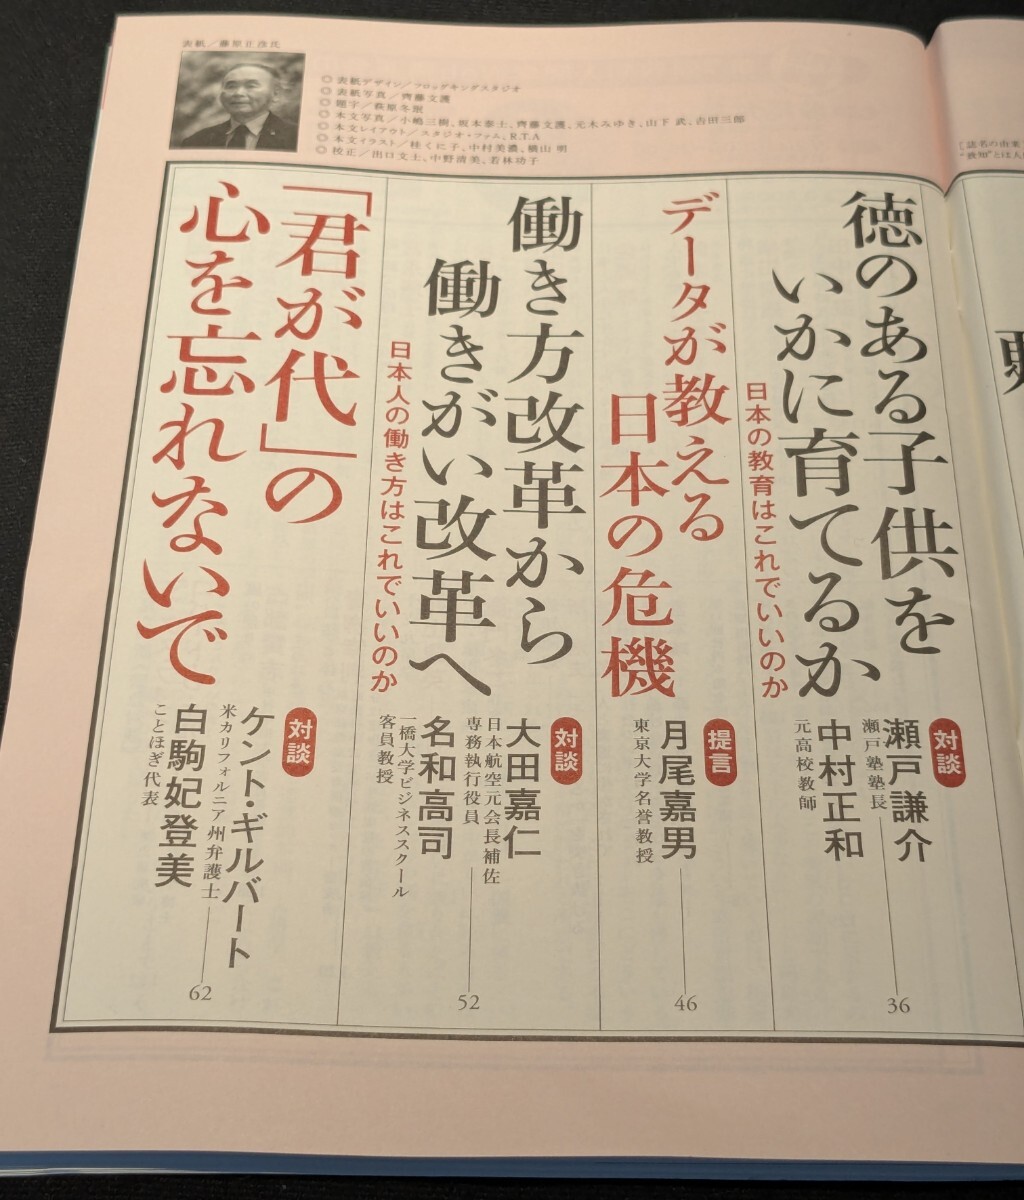 表紙／藤原正彦氏
◎表紙デザイン／フロッグキングスタジオ
◎表紙写真／齊藤文護
◎題字／萩原冬珉
◎本文写真／小嶋三樹、坂本泰士、齊藤文護、元木みゆき、山下 武、吉田三郎
◎本文レイアウト／スタジオ・ファム、R.T.A
◎本文イラスト／桂くに子、中村美濃、横山 明
◎校正／出口文士、中野清美、若林功子
［誌名の由来
“致知”とは人
徳のある子供を
いかに育てるか
日本の教育はこれでいいのか
対談
瀬戸謙介
瀬戸塾塾長
中村正和
元高校教師
36
データが教える
日本の危機
提言
月尾嘉男
東京大学名誉教授
46
働き方改革から
働きがい改革へ
日本人の働き方はこれでいいのか
対談
大田嘉仁
日本航空元会長補佐
専務執行役員
名和高司
一橋大学ビジネススクール
客員教授
52
「君が代」の
心を忘れないで
対談
ケント・ギルバート
米カリフォルニア州弁護士
白駒妃登美
ことほぎ代表
62